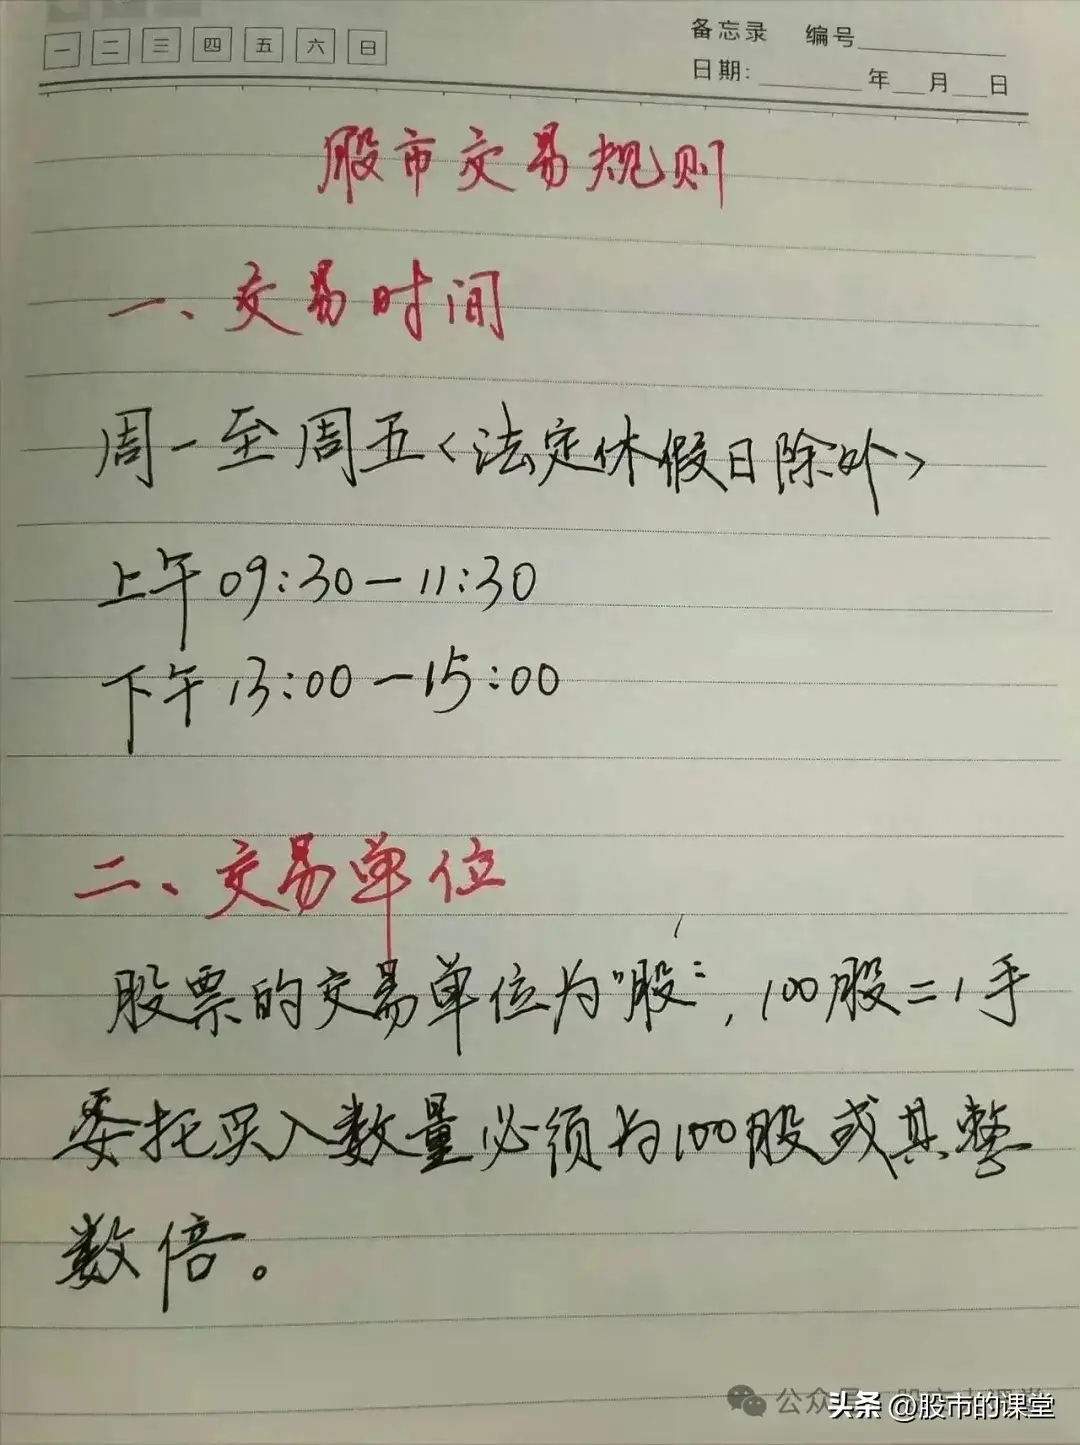 一 二 三 四 五 六 日
备忘录 编号
日期: 年 月 日
股市交易规则
一、交易时间
周一至周五<法定休假日除外>
上午09:30—11:30
下午13:00—15:00
二、交易单位
股票的交易单位为"股",100股=1手
委托买入数量必须为100股或其整
数倍。
公众号
头条 @股市的课堂